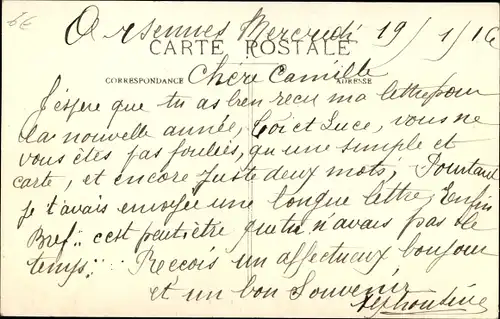 6€
Orsennes Mercredi 19/1/16
CARTE POSTALE
CORRESPONDANCE ADRESSE
Chère Camille
J'espère que tu as bien recu ma lettre pour
la nouvelle année, Toi et Luce, vous ne
vous êtes pas foulées, qu'une simple et
carte, et encore juste deux mots; Pourtant
je t'avais envoyée une longue lettre, Enfin
Bref.. c'est peut être que tu n'avais pas le
temps.. Recois un affectueux bonjour
et un bon Souvenir
Alphonsine